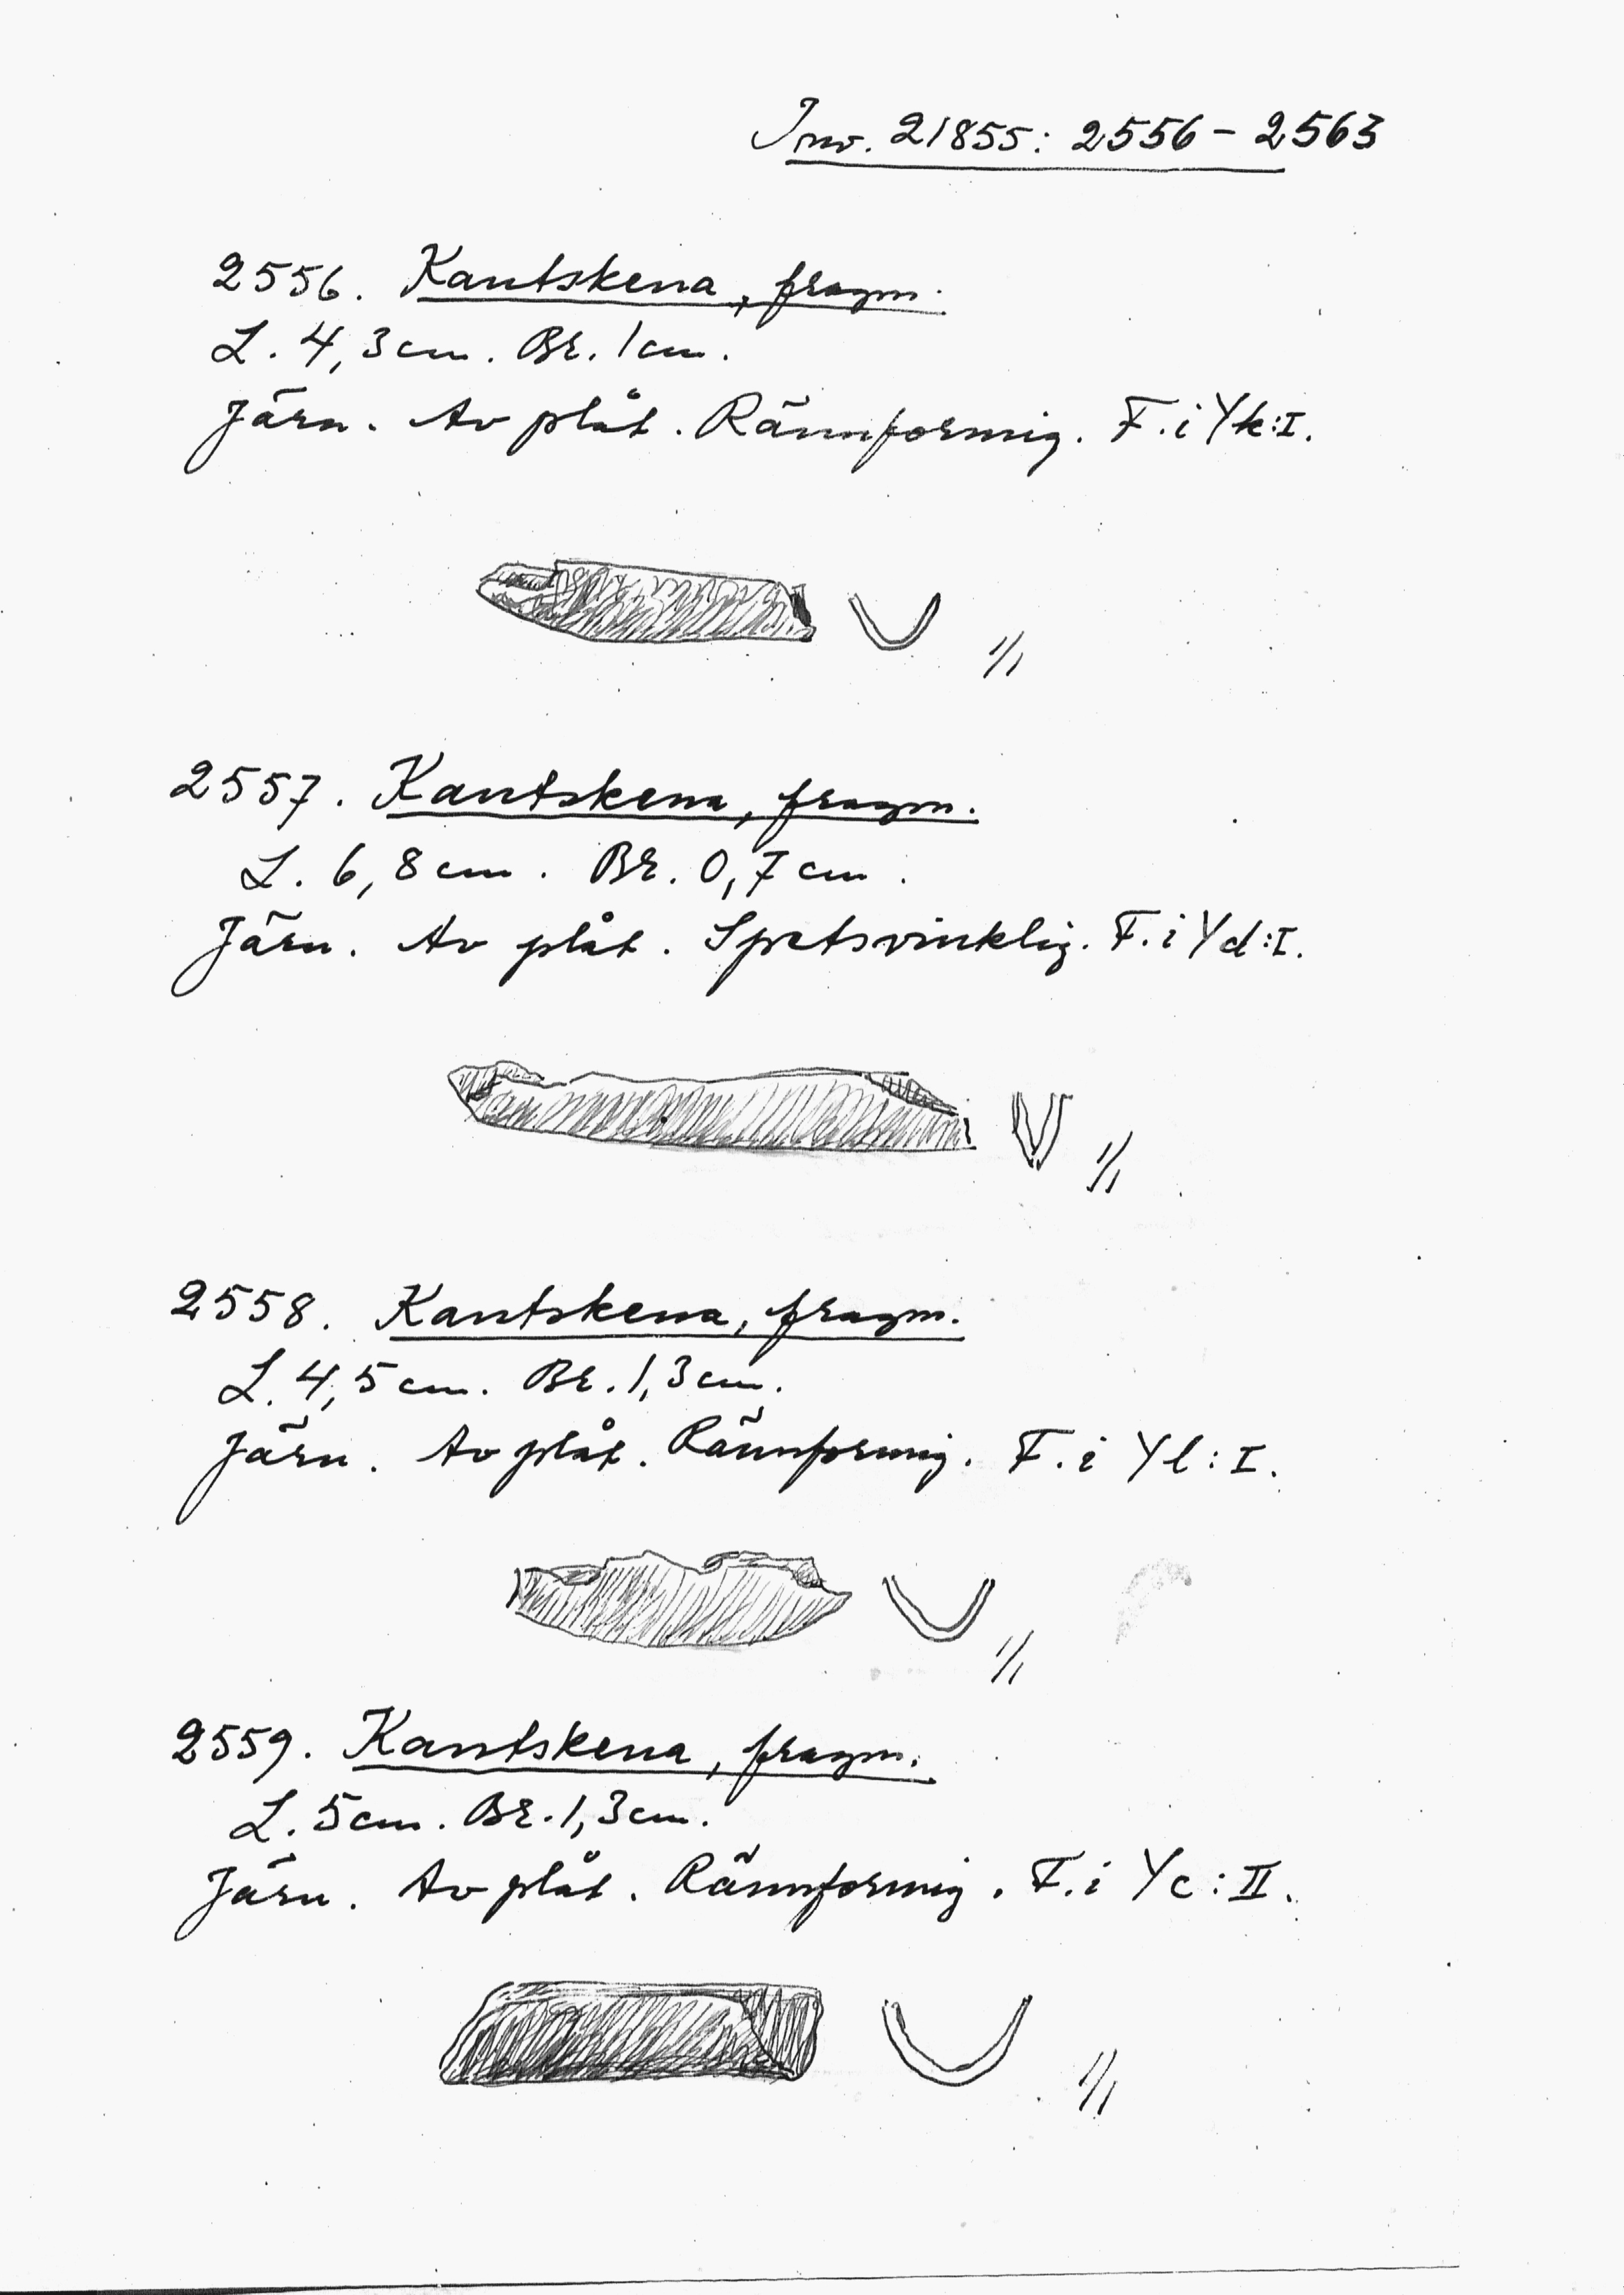 Inv. 21855: 2556 – 2563
2556. Kantskena, fragm.
L. 4,3 cm. Br. 1 cm.
Järn. Av plåt. Rännformig. F. i Yk:I.
1/1
2557. Kantskena, fragm.
L. 6,8 cm. Br. 0,7 cm.
Järn. Av plåt. Spetsvinklig. F. i Yd:I.
1/1
2558. Kantskena, fragm.
L. 4,5 cm. Br. 1,3 cm.
Järn. Av plåt. Rännformig. F. i Yl:I.
1/1
2559. Kantskena, fragm.
L. 5 cm. Br. 1,3 cm.
Järn. Av plåt. Rännformig. F. i Yc:II.
1/1